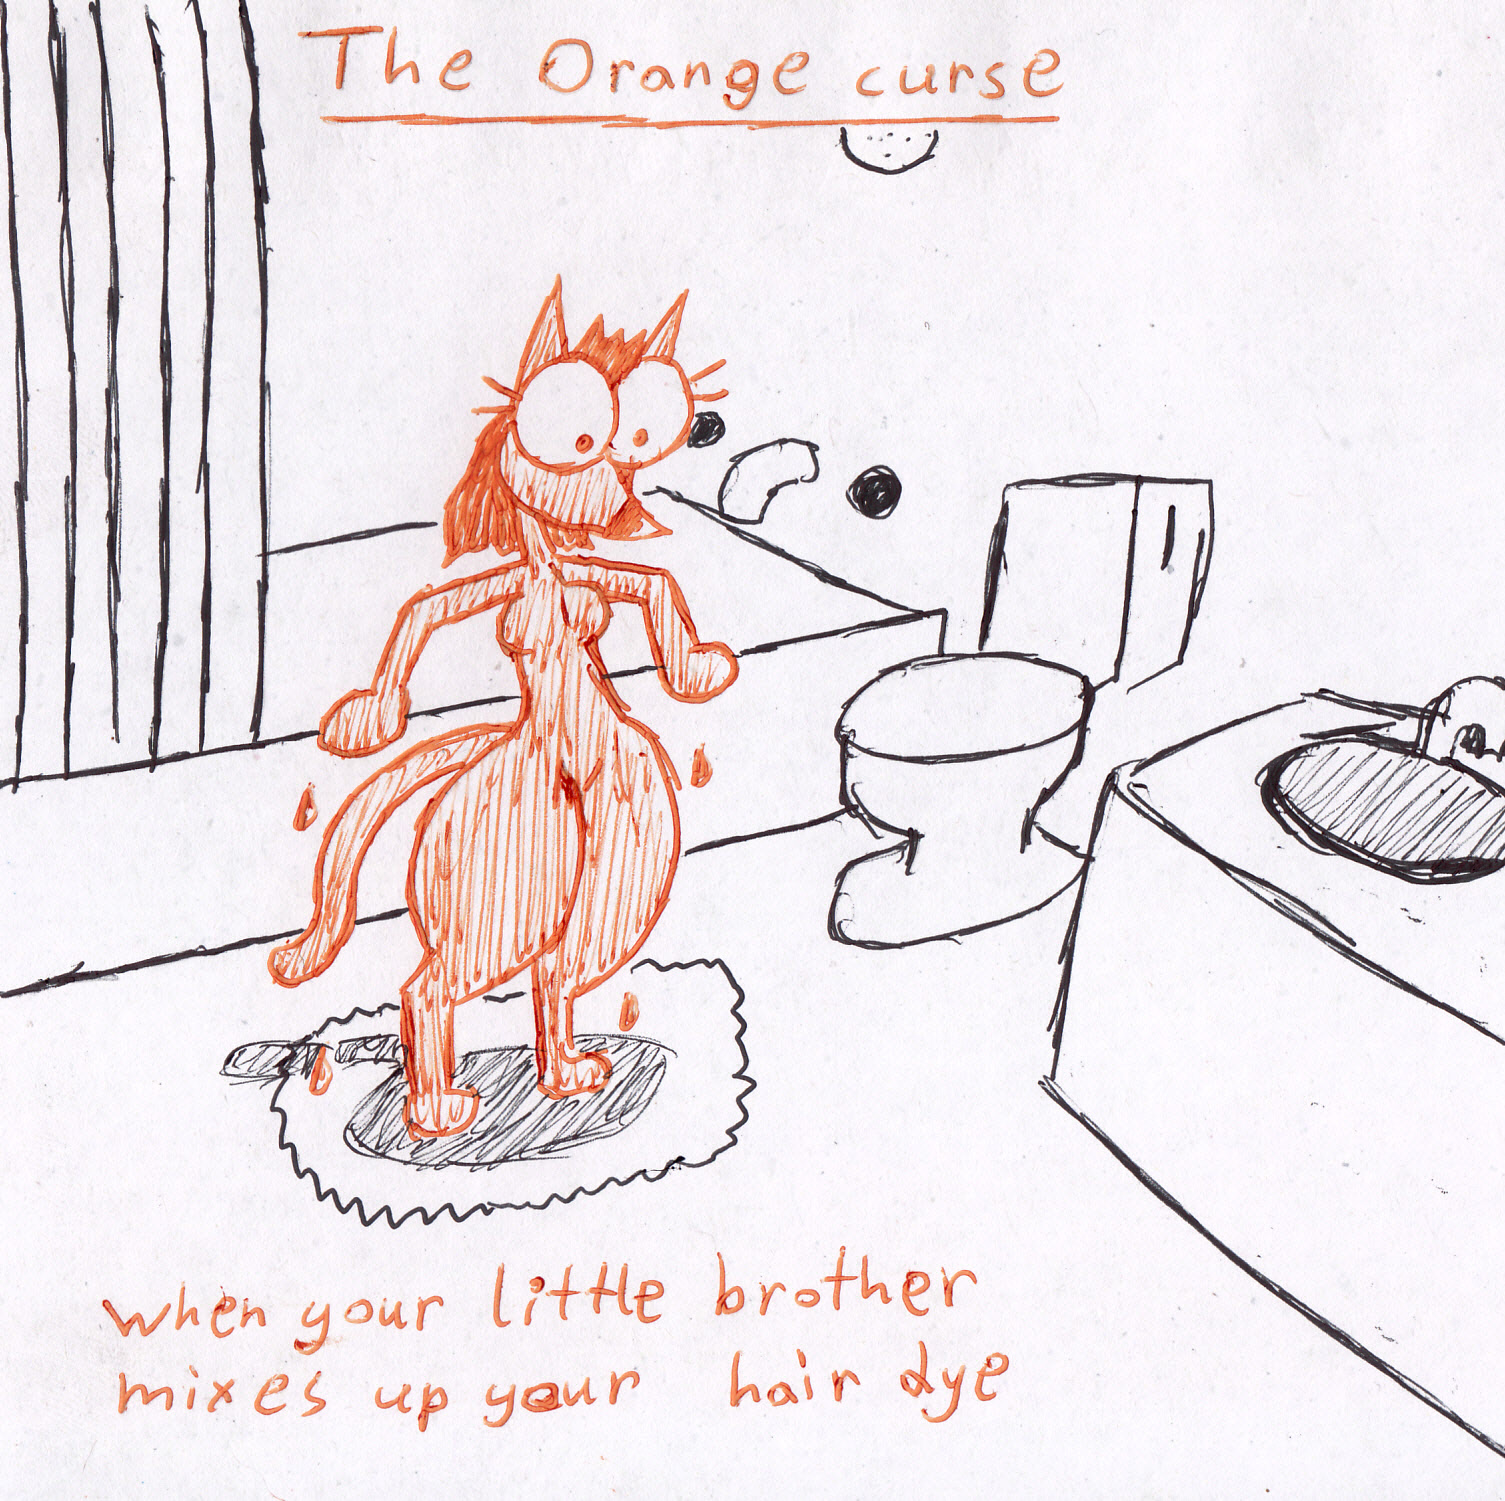 The Orange curse
when your little brother
mixes up your hair dye